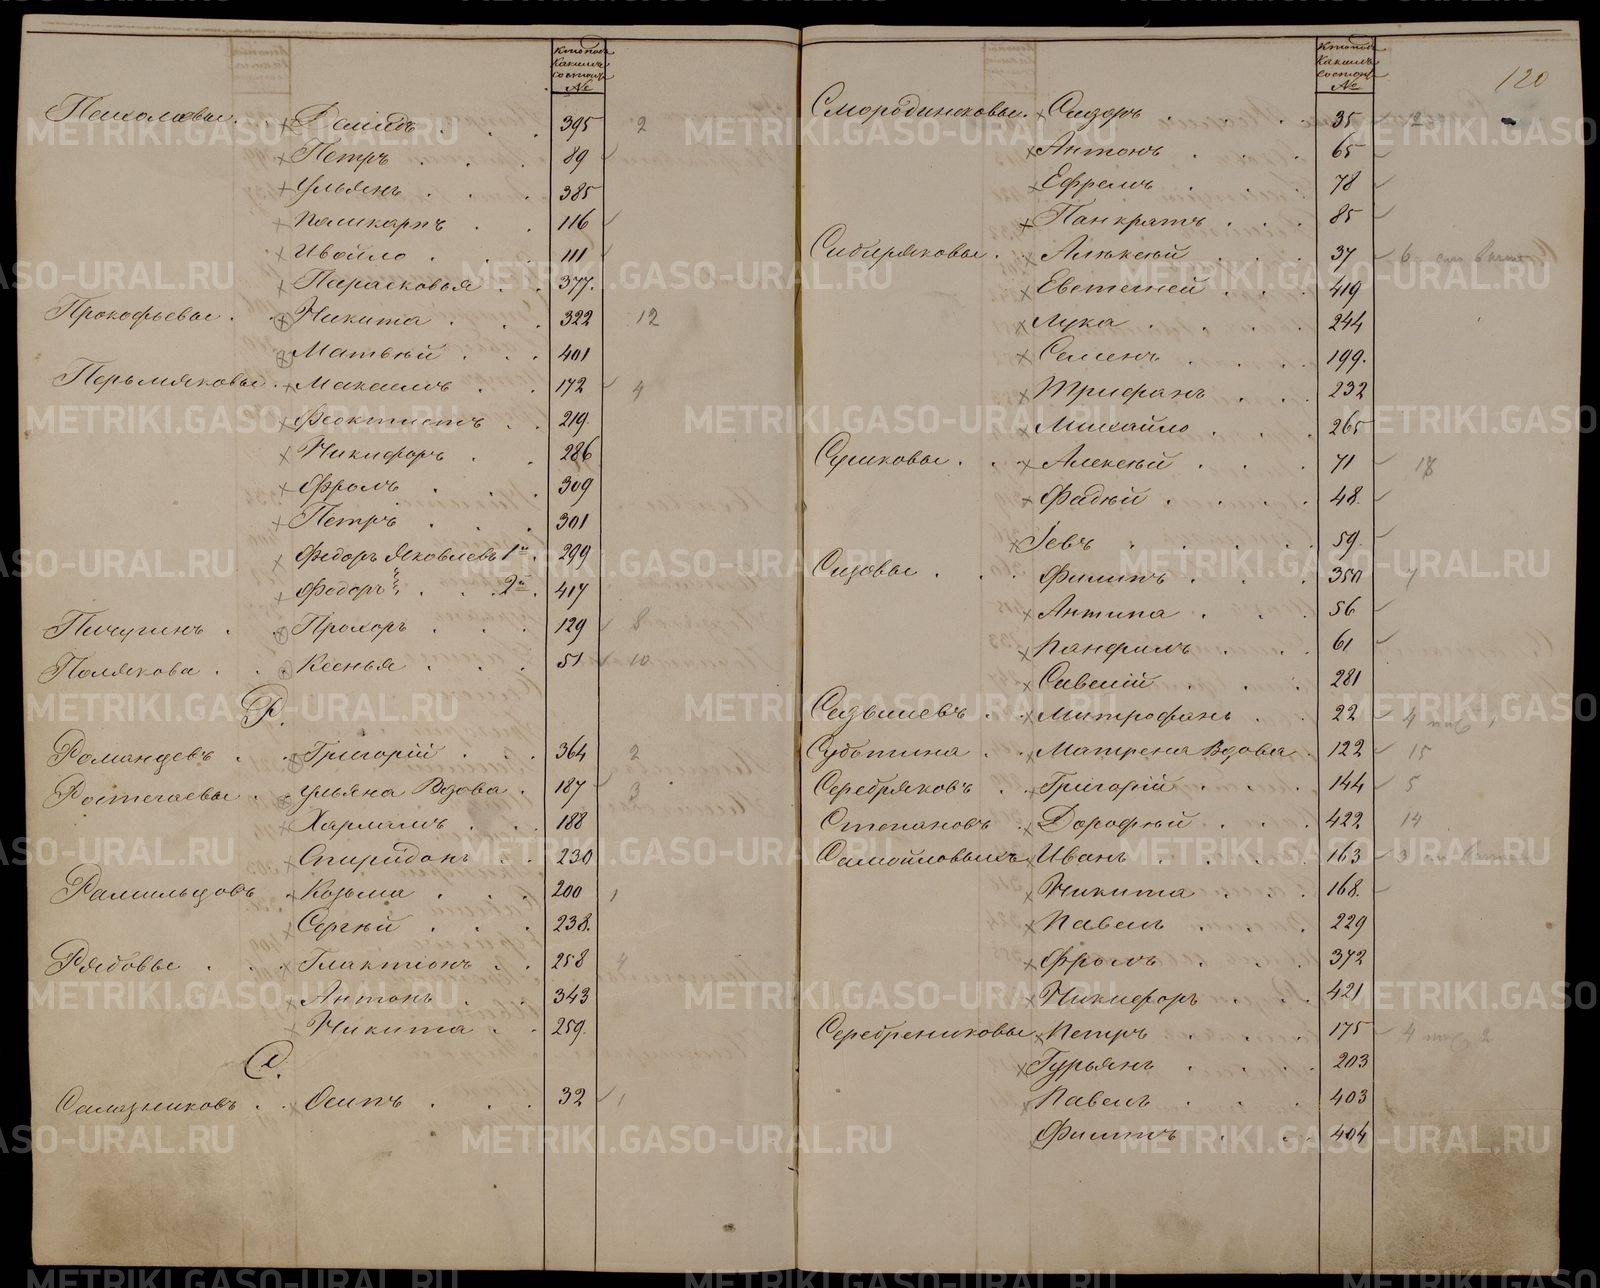 Кто подъ
Какимъ
состоитъ
№
Пахомовы . . Давидъ . . . 395 2
Петръ . . . 89
Ульянъ . . . 385
Поликарпъ . . 116
Ивойло . . . 111
Парасковья . . 377.
Прокофьевы . . Никита . . . 322 12
Матвѣй . . . 401
Пермяковы . Максимъ . . 172 4
Феоктистъ . . 219
Никифоръ . . 286
Фролъ . . . 309
Петръ . . . 301
Федоръ Яковлевъ 1й . 299
Федоръ . . . 2й . 417
Пичугинъ . . Прохоръ . . . 129 8
Полякова . . Ксенья . . . 51 10
Р.
Романцевъ . . Григорій . . . 364 2
Ростегаевы . . Ульяна Вдова . 187 3
Харламъ . . . 188
Спиридонъ . . 230
Рамильцовъ . Козьма . . . 200 1
Сергѣй . . . 238.
Рябовы . . . Галактіонъ . . 258 4
Антонъ . . . 343
Никита . . 259.
С.
Салазниковъ . . Осипъ . . . 32 1
120
Кто подъ
Какимъ
состоитъ
№
Смородинсковы . Сидоръ . . . 35 12
Антонъ . . . 65
Ефремъ . . . 78
Панкратъ . . . 85
Сибиряковы . Алексѣй . . . 37 6
Евстегней . . . 419
Лука . . . . 244
Семенъ . . . . 199.
Трифанъ . . . 232
Михайло . . . 265
Сушковы . . . Алексѣй . . . 71 18
Фадѣй . . . . 48.
Іевъ . . . . . 59.
Сизовы . . . Филипъ . . . 350 7
Антипа . . . 56
Панфилъ . . . 61
Савелій . . . 281
Сазыкинъ . . Митрофанъ . . 22 4
Субботина . . Матрена Вдова . 122 15
Серебряковъ . . Григорій . . . 144 5
Степановъ . Дорофѣй . . . 422 14
Самойловыхъ Иванъ . . . . 163 3
Никита . . . 168.
Павелъ . . . 229
Фролъ . . . 372
Никифоръ . . . 421
Серебрениковы Петръ . . . 175 4
Гурьянъ . . . . 203
Павелъ . . . 403
Филипъ . . . 404
METRIKI.GASO-URAL.RU